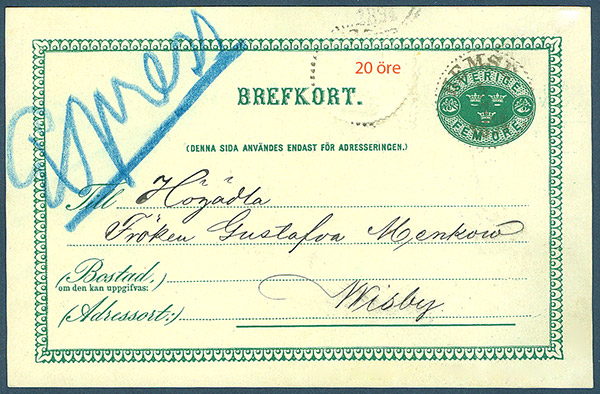 Espress
20 öre
SVERIGE
FEM ÖRE
BREFKORT.
(DENNA SIDA ANVÄNDES ENDAST FÖR ADRESSERINGEN.)
Till Högädla
Fröken Gustafva Menkow
(Bostad,
om den kan uppgifvas:)
(Adressort:) Wisby